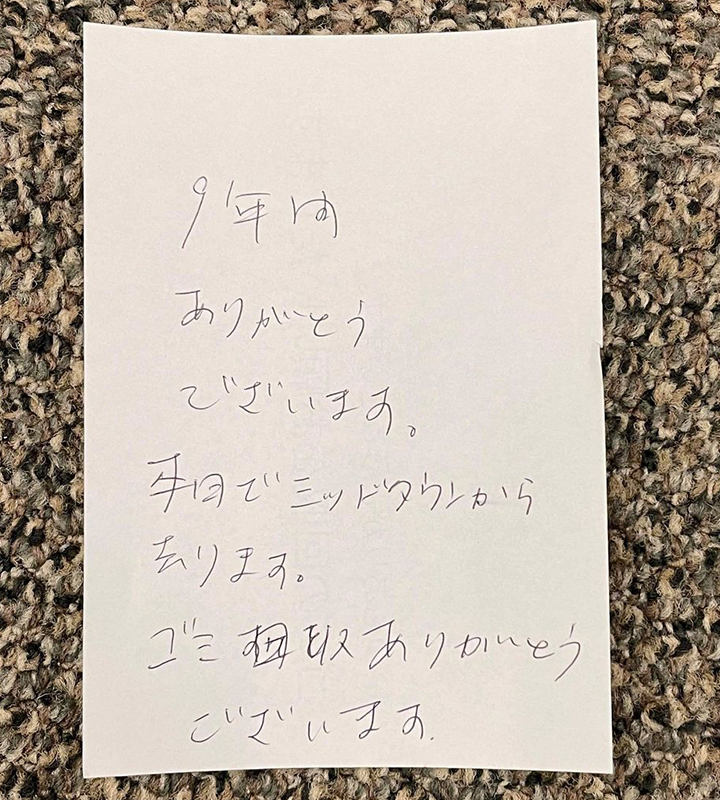 9年間
ありがとう
ございます。
本日でミッドタウンから
去ります。
ゴミ ありがとう
ございます.